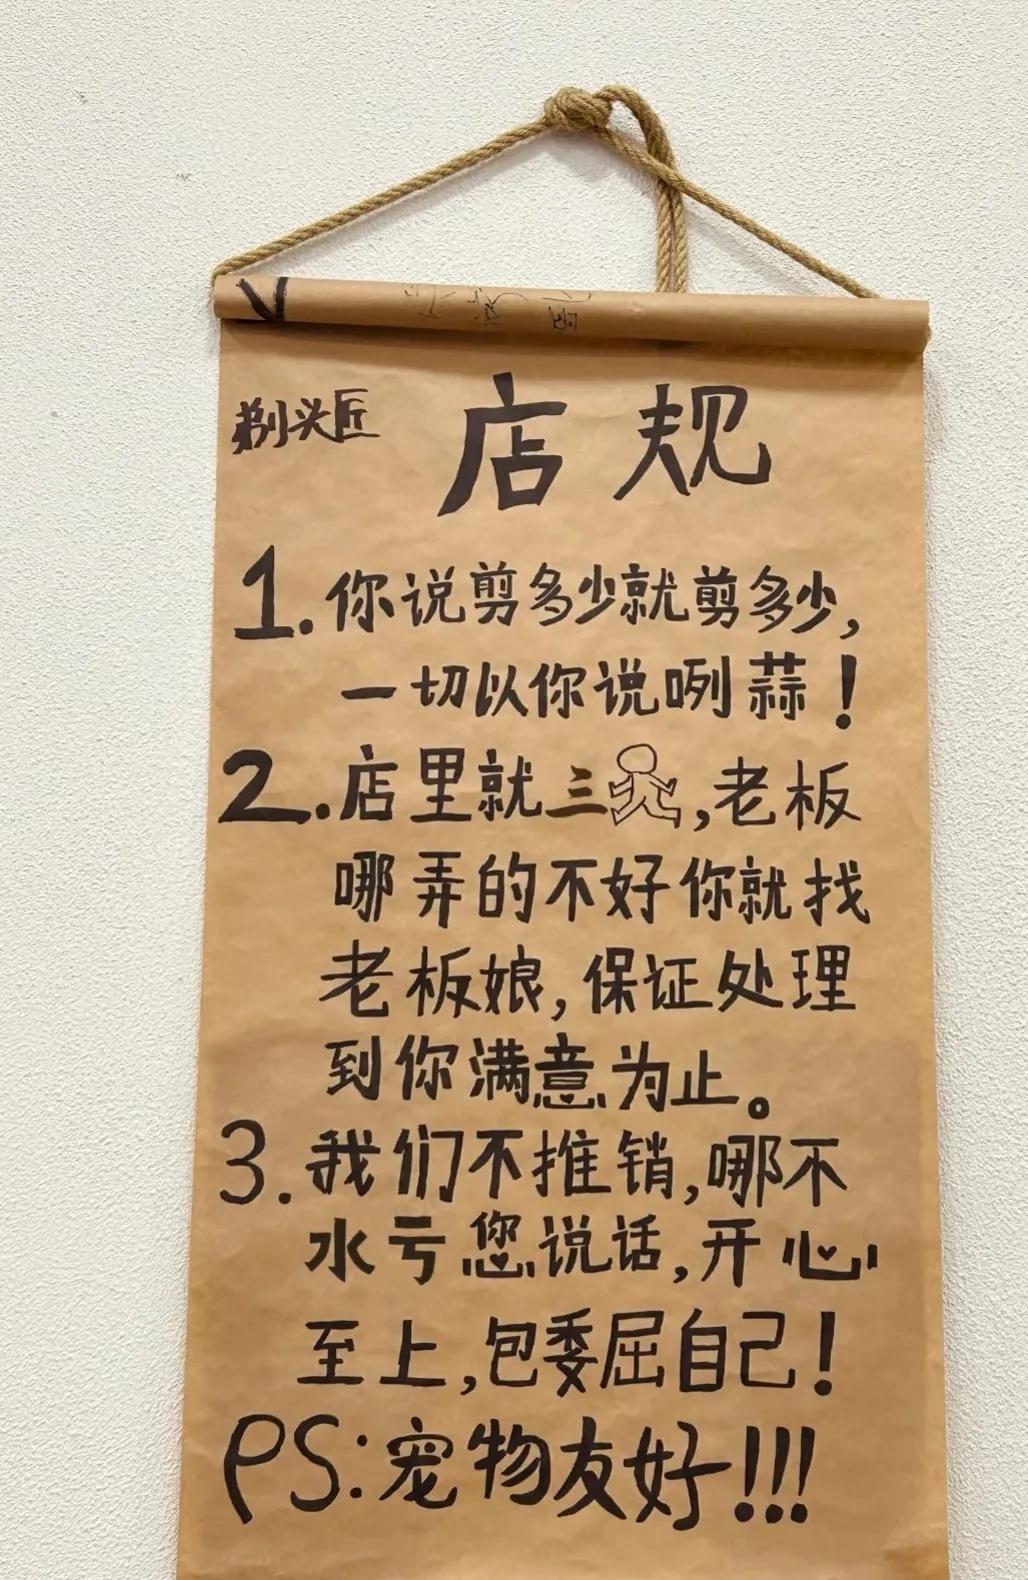 剃头匠
店规
1.你说剪多少就剪多少,
一切以你说咧蒜!
2.店里就三,老板
哪弄的不好你就找
老板娘,保证处理
到你满意为止。
3.我们不推销,哪不
水亏您说话,开心
至上,包委屈自己!
PS:宠物友好!!!